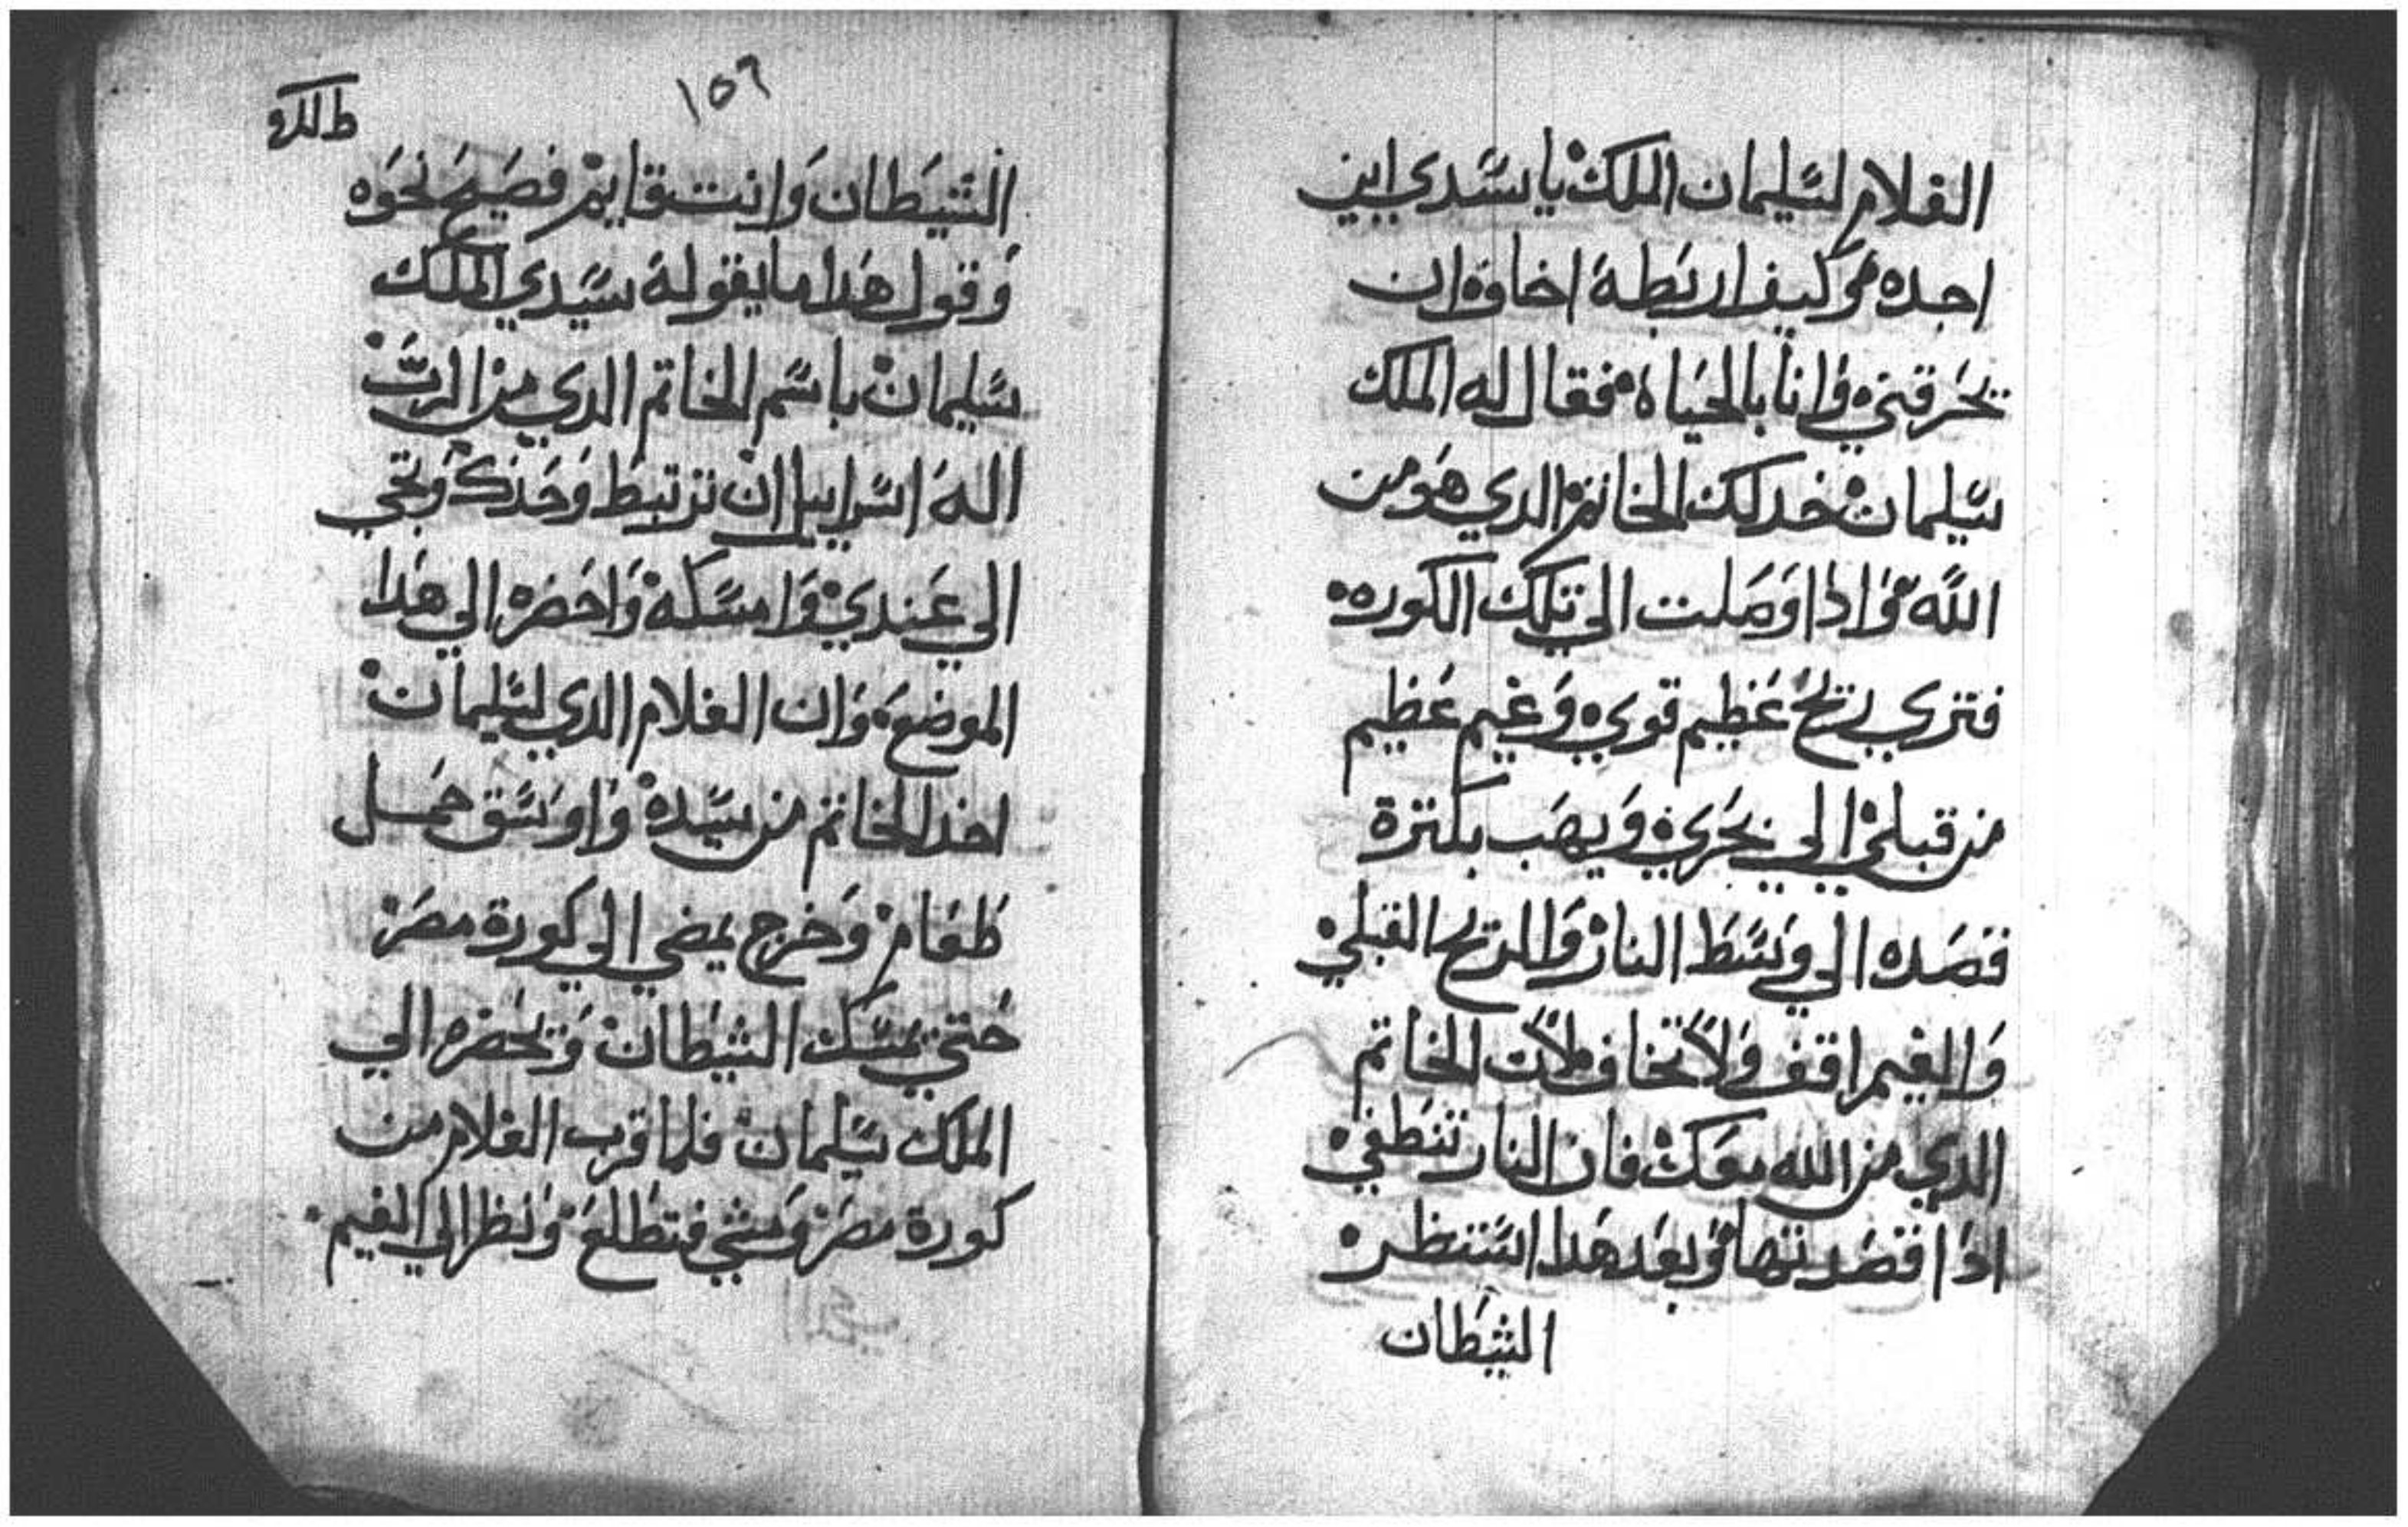 الغلام لسليمان الملك يا سيدي اين
اجده وكيف اربطه اخاف ان
يحرقني وانا بالحياه فقال له الملك
سليمان خد لك الخاتم الدي هو من
الله واذا وصلت الي تلك الكوره
فتري ريح عظيم قوي وغيم عظيم
من قبلي الي بحري ويهب بكترة
قصده الي وسط النار والريح القبلي
والغيم اقف ولا تخاف لان الخاتم
الدي من الله معك فان النار تنطفي
اذا قصدتها وبعد هدا استنظر
الشيطان
١٥٦
الشيطان وانت قايم فصيح نحوه
وقول هدا ما يقوله سيدي الملك
سليمان باسم الخاتم الدي من الرب
اله اسراييل ان ترتبط وحدك وتجي
الي عندي وامسكه واحضره الي هدا
الموضع وان الغلام الدي لسليمان
اخد الخاتم من سيده واوسق حمل
طعام وخرج يمضي الي كورة مصر
حتي يمسك الشيطان ويحضره الي
الملك سليمان فلما قرب الغلام من
كورة مصر ومشي فتطلع ونظر الي الغيم